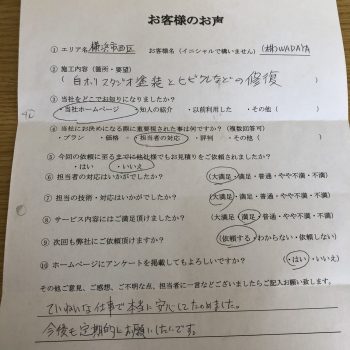 お客様のお声
① エリア名 横浜市西区 お客様名(イニシャルで構いません)((株)WADAYA)
② 施工内容(箇所・要望)
(白ホリスタジオ塗装とヒビワレなどの修復)
③ 当社をどこでお知りになりましたか?
・当社ホームページ ・知人の紹介 ・以前利用した ・その他( )
④ 当社にお決めになる際に重要視された事は何ですか?(複数回答可)
・プラン ・価格 ・担当者の対応 ・評判 ・その他( )
⑤ 今回の依頼に至るまでに他社様でもお見積りをご依頼されましたか?
・はい ・いいえ
⑥ 担当者の対応はいかがでしたか? (大満足・満足・普通・やや不満・不満)
⑦ 担当の技術・対応はいかがでしたか? (大満足・満足・普通・やや不満・不満)
⑧ サービス内容にはご満足頂けましたか? (大満足・満足・普通・やや不満・不満)
⑨ 次回も弊社にご依頼頂けますか? (依頼する・わからない・依頼しない)
⑩ ホームページにアンケートを掲載してもよろしいですか? (・はい・いいえ)
その他ご意見、ご感想、ご不明な点、担当者に一言などございましたらご記入お願い致します。
ていねいな仕事で本当に安心してたのめました。
今後も定期的にお願いしたいです。